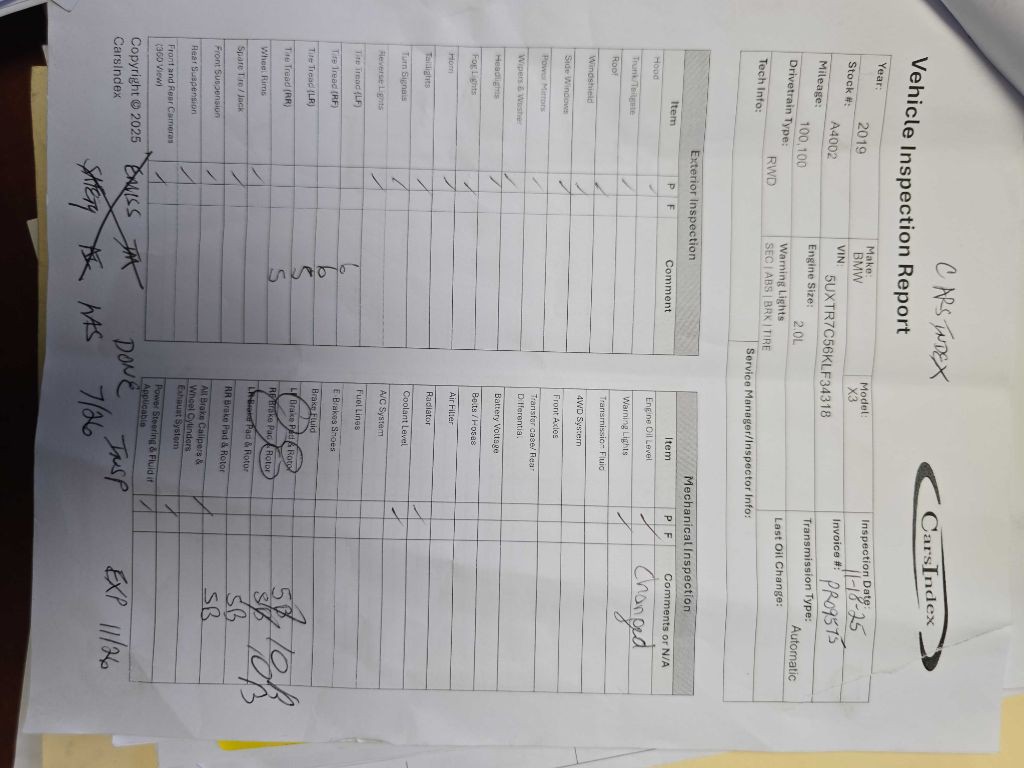 CARS INDEX
Vehicle Inspection Report
CarsIndex
Year: 2019 Make: BMW Model: X3 Inspection Date: 11-18-25
Stock #: A4002 VIN: 5UXTR7C56KLF34318 Invoice #: PR09575
Mileage: 100,100 Engine Size: 2.0L Transmission Type: Automatic
Drivetrain Type: RWD Warning Lights SEC | ABS | BRK | TIRE Last Oil Change:
Tech Info: Service Manager/Inspector Info:
Exterior Inspection
Item P F Comment
Hood ✓
Trunk/Tailgate ✓
Roof
Windshield ✓
Side Windows ✓
Power Mirrors ✓
Wipers & Washer ✓
Headlights ✓
Fog Lights ✓
Horn ✓
Taillights ✓
Turn Signals ✓
Reverse Lights ✓
Tire Tread (LF) 6
Tire Tread (RF) 6
Tire Tread (LR) 5
Tire Tread (RR) 5
Wheel Rims ✓
Spare Tire / Jack ✓
Front Suspension ✓
Rear Suspension ✓
Front and Rear Cameras
(360 View) ✓
Mechanical Inspection
Item P F Comments or N/A
Engine Oil Level ✓ Changed
Warning Lights ✓
Transmission Fluid
4WD System
Front Axles
Transfer case/ Rear
Differential
Battery Voltage
Belts / Hoses
Air Filter
Radiator ✓
Coolant Level ✓
A/C System
Fuel Lines
E-Brakes Shoes
Brake Fluid
LF Brake Pad & Rotor
RF Brake Pad & Rotor
Brake Pad & Rotor
RR Brake Pad & Rotor
All Brake Calipers &
Wheel Cylinders ✓
Exhaust System ✓
Power Steering & Fluid if
Applicable ✓
Copyright © 2025
CarsIndex
DONE INSP EXP 11/26
HAS 7/26